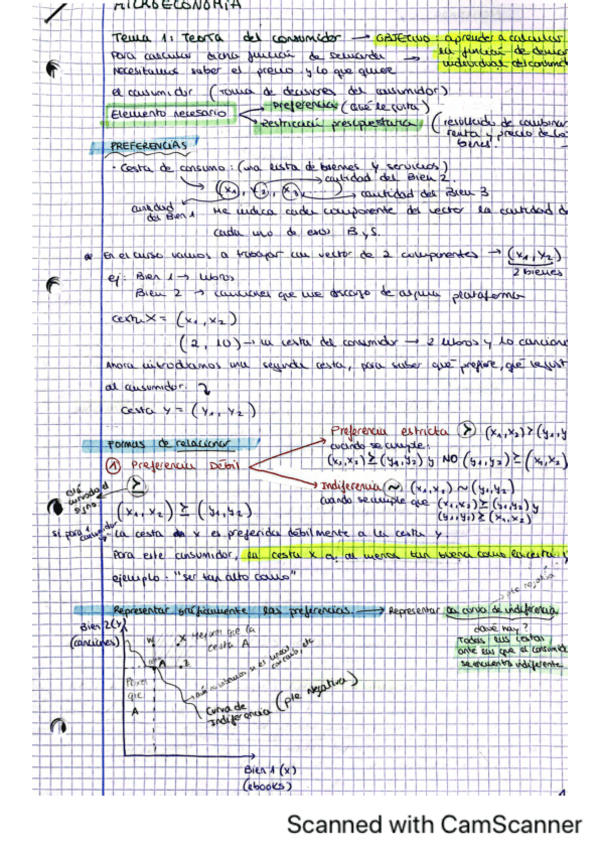 MICROECONOMÍA
Tema 1: Teoría del consumidor → OBJETIVO: aprender a calcular
Para calcular dicha función de demanda → la función de deman
necesitamos saber el precio y lo que quiere individual del consumid
el consumidor (toma de decisiones del consumidor)
Elemento necesario Preferencia (qué le gusta)
Restricción presupuestaria (resultado de combinar
renta y precio de los
bienes.
PREFERENCIAS
· Cesta de consumo: (una lista de bienes y servicios)
cantidad del Bien 2.
(x₁, x₂, x₃) cantidad del Bien 3
cantidad
del Bien 1 Me indica cada componente del vector la cantidad d
cada uno de esos B y S.
En el curso vamos a trabajar un vector de 2 componentes → (x₁, x₂)
2 bienes
ej: Bien 1 → libros
Bien 2 → canciones que me descargo de alguna plataforma
cesta X = (x₁, x₂)
(2, 10) → la cesta del consumidor → 2 libros y 10 cancione
Ahora introducimos una segunda cesta, para saber qué prefiere, qué le gust
al consumidor.
cesta Y = (y₁, y₂)
Formas de relacionar
Preferencia estricta ≻ (x₁, x₂) ≻ (y₁, y
cuando se cumple:
(x₁, x₂) ≥ (y₁, y₂) y NO (y₁, y₂) ≥ (x₁, x₂)
① Preferencia Débil
≥
Indiferencia ~ (x₁, x₂) ~ (y₁, y₂)
cuando se cumple que (x₁, x₂) ≥ (y₁, y₂) y
(y₁, y₂) ≥ (x₁, x₂)
está
curvado el
signo
(x₁, x₂) ≥ (y₁, y₂)
si para 1
consumidor
La cesta x es preferida débilmente a la cesta y
Para este consumidor, la cesta x es al menos tan buena como la cesta
ejemplo: "ser tan alto como"
Representar gráficamente las preferencias. → Representar la curva de indiferencia
pte negativa
¿Qué hay?
Todas las cestas
ante las que el consumid
se encuentra indiferente
Bien 2 (y)
(canciones)
W
X mejor que la
cesta A
A
Z
Peor
que
A
Curva de
Indiferencia (pte negativa)
Bien 1 (x)
(ebooks)
Scanned with CamScanner